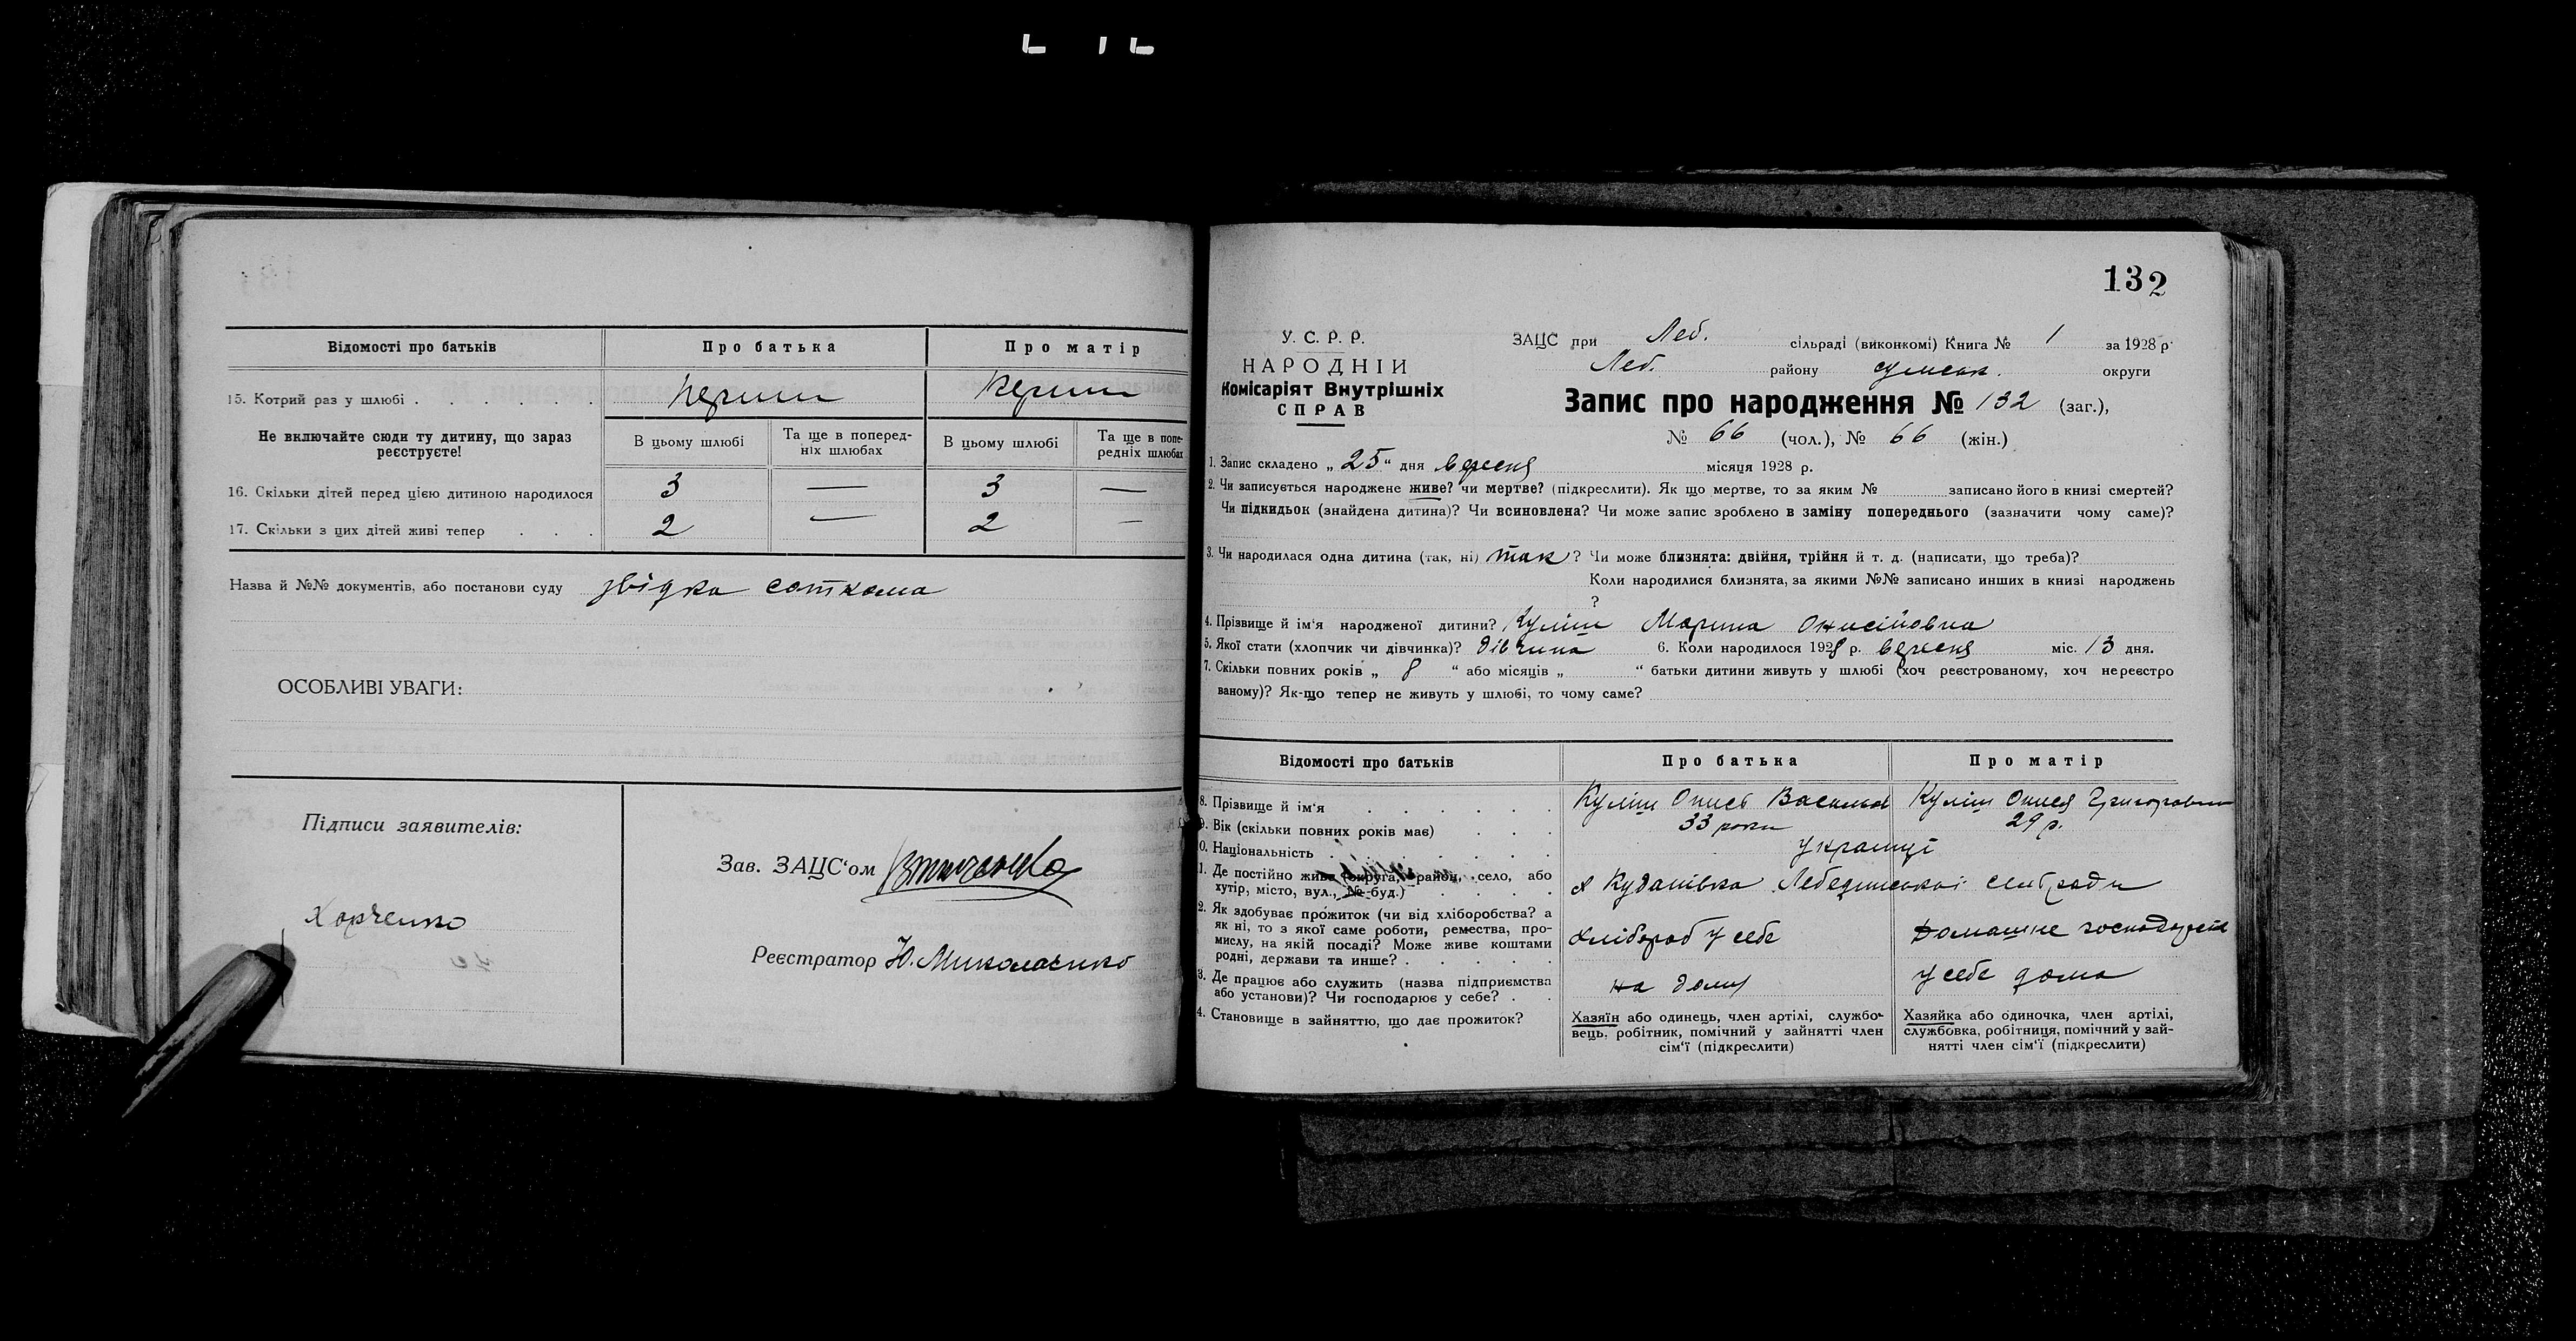 Відомості про батьків Про батька Про матір
15. Котрий раз у шлюбі . . . . . . . перший перший
Не включайте сюди ту дитину, що зараз реєструєте!
В цьому шлюбі Та ще в попередніх шлюбах В цьому шлюбі Та ще в попередніх шлюбах
16. Скільки дітей перед цією дитиною народилося 3 — 3 —
17. Скільки з цих дітей живі тепер . . . 2 — 2 —
Назва й №№ документів, або постанови суду звідка соткома
ОСОБЛИВІ УВАГИ:
Підписи заявителів:
Харченко
Зав. ЗАЦС'ом
Реєстратор Ю. Миколаєнко
132
У. С. Р. Р.
НАРОДНІЙ
Комісаріят Внутрішніх
СПРАВ
ЗАЦС при Леб. сільраді (виконкомі) Книга № 1 за 1928 р.
Леб. району Сумськ. округи
Запис про народження № 132 (заг.),
№ 66 (чол.), № 66 (жін.)
1. Запис складено „ 25 “ дня вересня місяця 1928 р.
2. Чи записується народжене живе? чи мертве? (підкреслити). Як що мертве, то за яким № записано його в книзі смертей?
Чи підкидьок (знайдена дитина)? Чи всиновлена? Чи може запис зроблено в заміну попереднього (зазначити чому саме)?
3. Чи народилася одна дитина (так, ні) так ? Чи може близнята: двійня, трійня й т. д. (написати, що треба)?
Коли народилися близнята, за якими №№ записано инших в книзі народжень
?
4. Прізвище й ім'я народженої дитини? Куліш Марина Онисіївна
5. Якої стати (хлопчик чи дівчинка)? дівчина 6. Коли народилося 1928 р. вересня міс. 13 дня.
7. Скільки повних років „ 8 “ або місяців „ “ батьки дитини живуть у шлюбі (хоч реєстрованому, хоч нереєстро
ваному)? Як-що тепер не живуть у шлюбі, то чому саме?
Відомості про батьків Про батька Про матір
8. Прізвище й ім'я . . . . . . Куліш Онисій Васильов Куліш Онися Григоровна
9. Вік (скільки повних років має) . . . 33 роки 29 р.
0. Національність . . . . . . українці
1. Де постійно живе (округа, район, село, або
хутір, місто, вул., № буд.) . . . х Куданівка Лебединської сельради
2. Як здобуває прожиток (чи від хліборобства? а
як ні, то з якої саме роботи, ремества, про-
мислу, на якій посаді? Може живе коштами
родні, держави та инше? . . . . . хлібороб у себе Домашнє господарств
3. Де працює або служить (назва підприємства
або установи)? Чи господарює у себе? . . на дому у себе дома
4. Становище в зайняттю, що дає прожиток?
Хазяїн або одинець, член артілі, службо-
вець, робітник, помічний у зайнятті член
сім'ї (підкреслити)
Хазяйка або одиночка, член артілі,
службовка, робітниця, помічний у зай-
нятті член сім'ї (підкреслити)